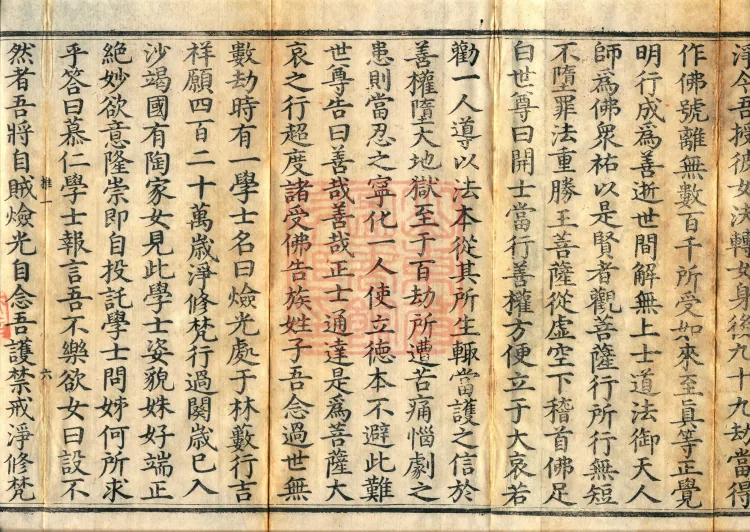 淨今吾授彼女決轉女身後九十九劫當得
作佛號離無數百千所受如來至真等正覺
明行成為善逝世間解無上士道法御天人
師為佛眾祐以是賢者觀菩薩行所行無短
不墮罪法重勝王菩薩從虛空下稽首佛足
白世尊曰開士當行善權方便立于大哀若
勸一人導以法本從其所生輙當護之信於
善權墮大地獄至于百劫所遭苦痛惱劇之
患則當忍之寧化一人使立德本不避此難
世尊告曰善哉善哉正士通達是為菩薩大
哀之行超度諸受佛告族姓子吾念過世無
數劫時有一學士名曰燄光處于林藪行吉
祥願四百二十萬歲淨修梵行過閡歲已入
沙竭國有陶家女見此學士姿貌姝好端正
絕妙欲意隆崇即自投託學士問姊何所求
乎荅曰慕仁學士報言吾不樂欲女曰設不
然者吾將自賊燄光自念吾護禁戒淨修梵
推一 六